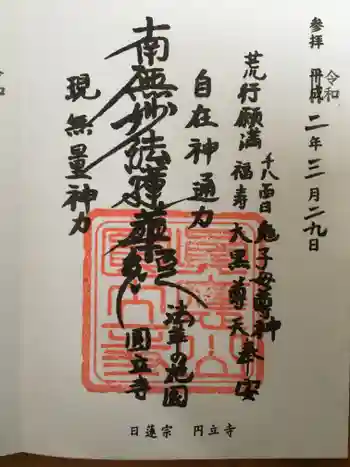 参拝 平成 令和 二年三月二九日
荒行願満 千八百日 鬼子母尊神
福寿大黒尊天 奉安
自在神通力
南無妙法蓮華経
現無量神力
法華の花園
圓立寺
日蓮宗 円立寺
令和